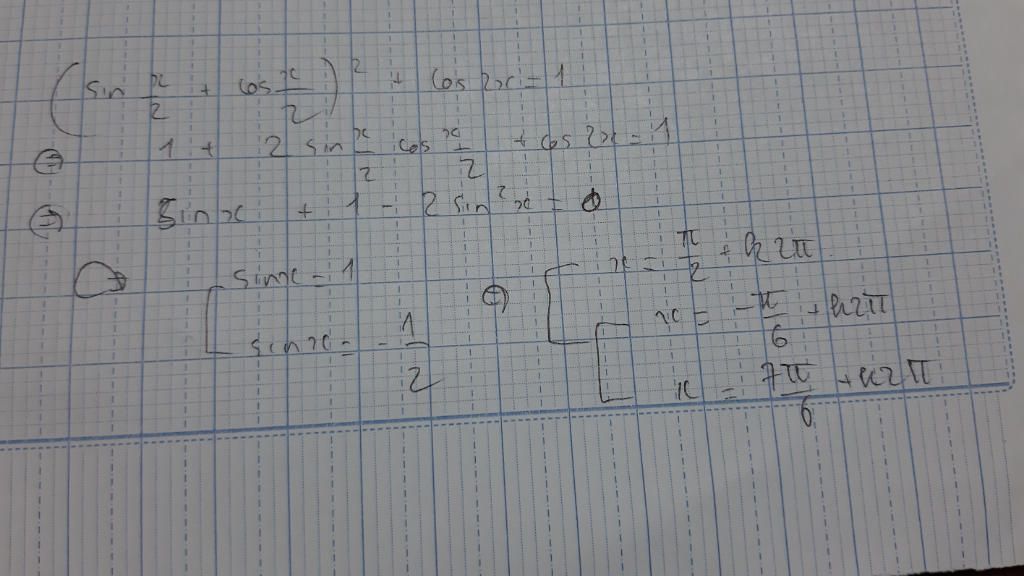 (sin x/2 + cos x/2)² + cos 2x = 1
⇔ 1 + 2 sin x/2 cos x/2 + cos 2x = 1
⇔ sin x + 1 - 2 sin² x = 0
⇔ [ sin x = 1 ⇔ [ x = π/2 + k2π
sin x = -1/2 [ x = -π/6 + k2π
x = 7π/6 + k2π